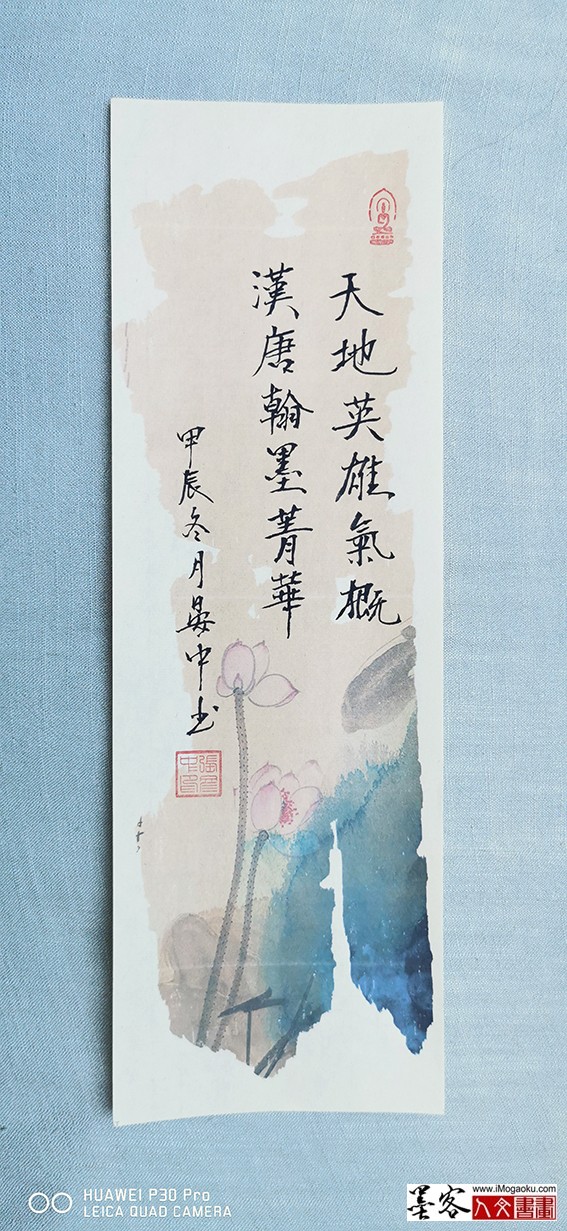 天地英雄氣概
漢唐翰墨菁華
甲辰冬月晏中书
HUAWEI P30 Pro
LEICA QUAD CAMERA
www.iMogaoku.com
墨客
人文書畫